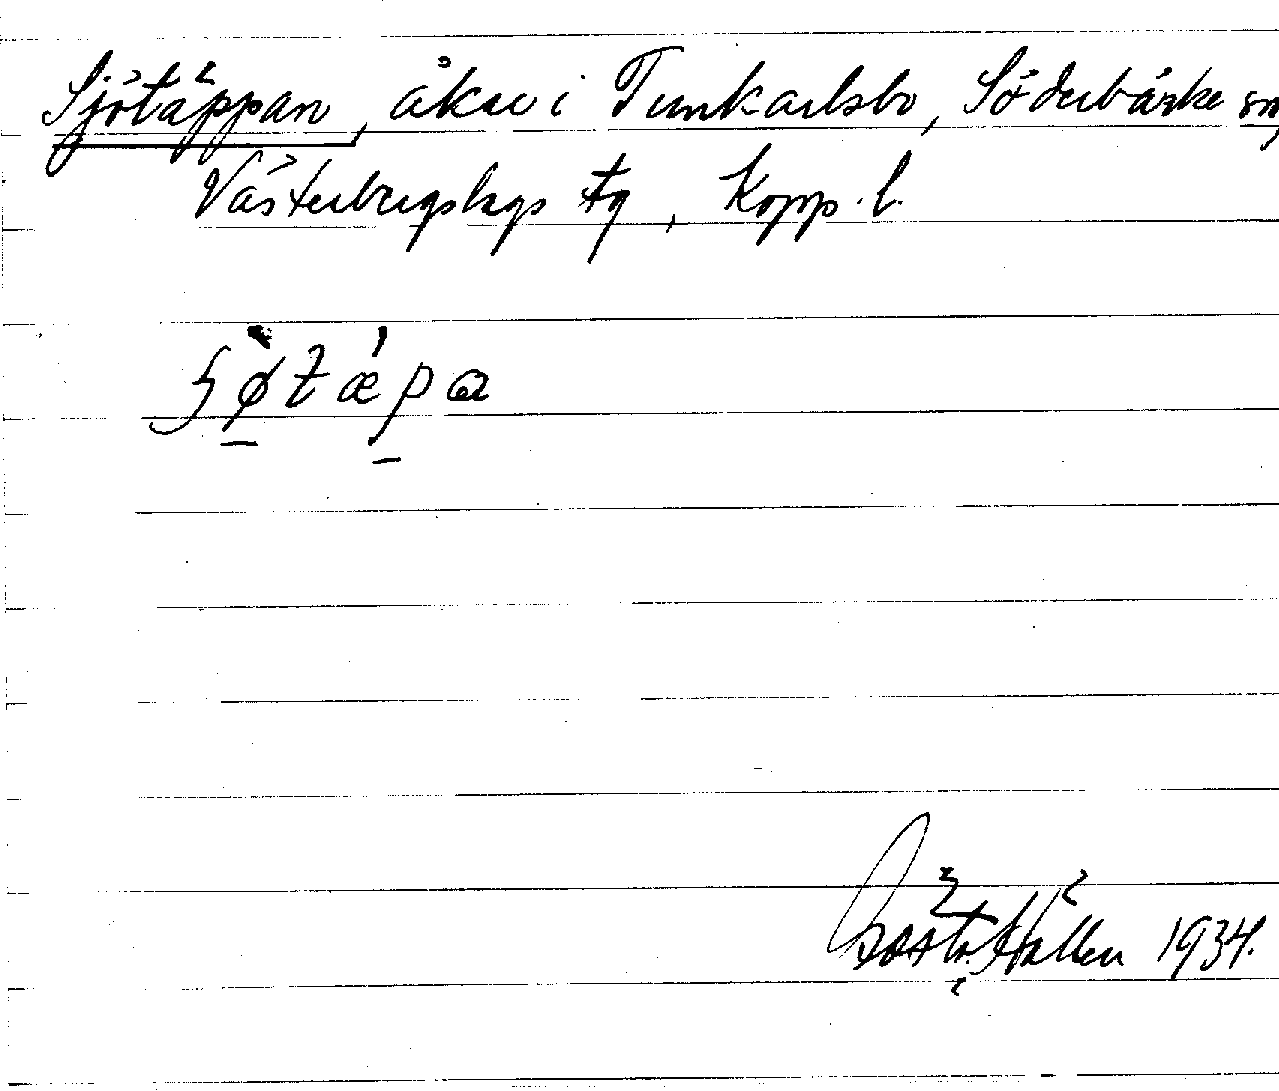 Sjötäppan, åker i Tunkarlsbo, Söderbärke sn,
Västerbergslags tg, Kopp. l.
Gösta Hallen 1934.